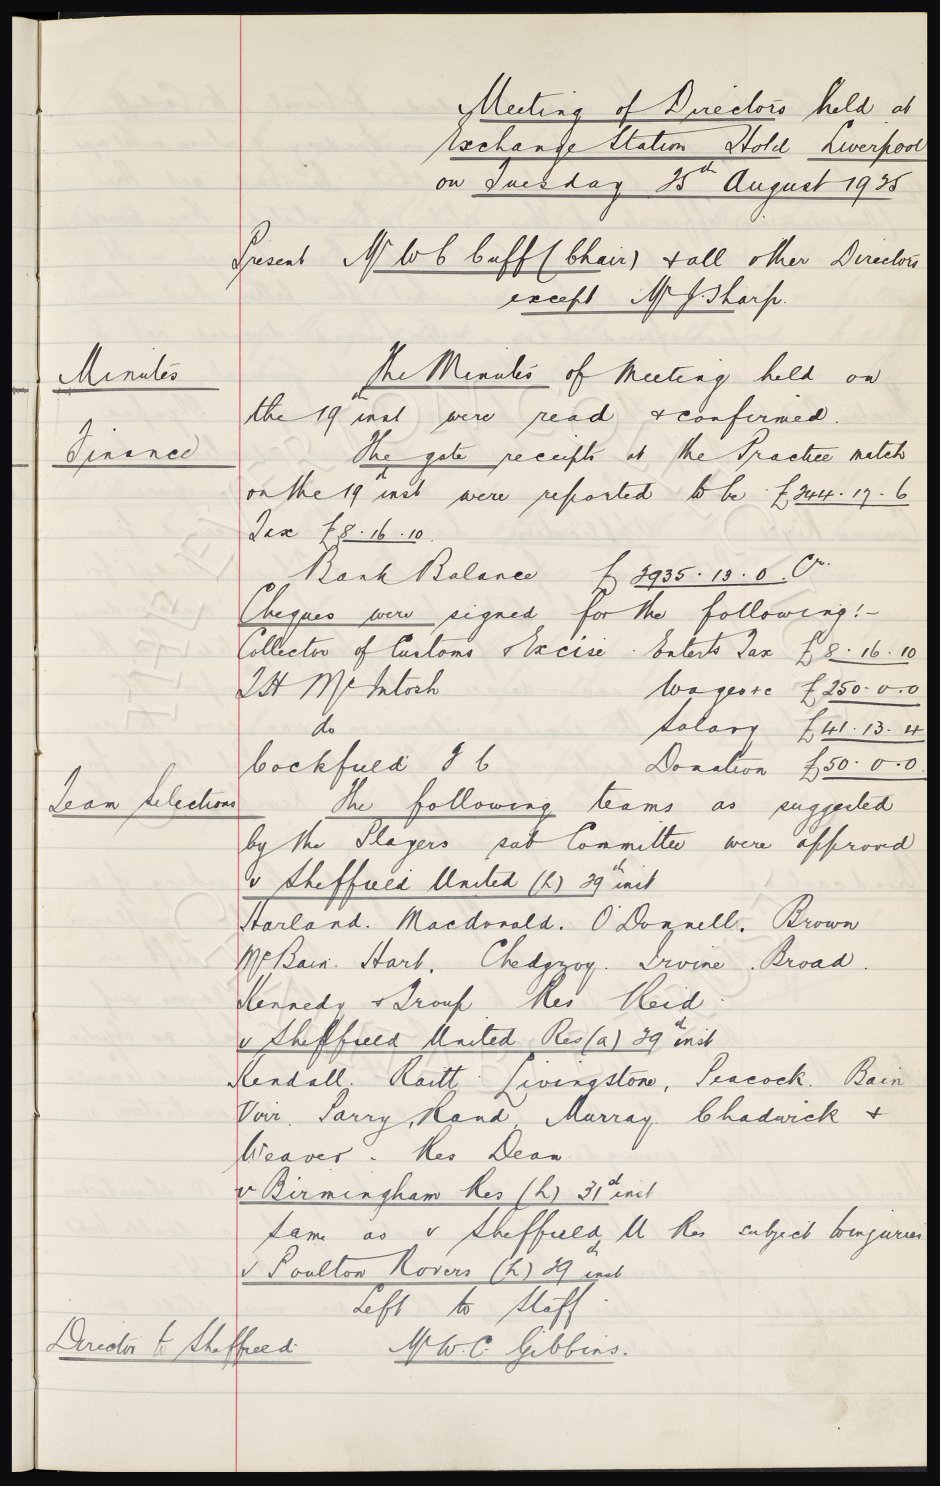 Meeting of Directors held at
Exchange Station Hotel Liverpool
on Tuesday 25th August 1925
Present Mr W C Cuff (Chair) & all other Directors
except Mr J. Sharp.
Minutes The Minutes of Meeting held on
the 19th inst were read & confirmed.
Finance The gate receipts at the Practice match
on the 19th inst were reported to be £244.17.6
Tax £8.16.10.
Bank Balance £2935.13.0. Cr.
Cheques were signed for the following:-
Collector of Customs & Excise. Enterts Tax £8.16.10
T H McIntosh Wages &c £250.0.0
do Salary £41.13.4
Cockfield J C Donation £50.0.0.
Team Selections The following teams as suggested
by the Players sub Committee were approved
v Sheffield United (h) 29th inst
Harland. Macdonald. O'Donnell. Brown
McBain. Hart. Chedgzoy. Irvine. Broad.
Kennedy & Troup Res Reid.
v Sheffield United Res (a) 29th inst
Kendall. Raitt. Livingstone, Peacock. Bain
Virr. Parry, Rand, Murray. Chadwick &
Weaver. Res Dean.
v Birmingham Res (h) 31st inst
Same as v Sheffield U Res subject to injuries
v Poulton Rovers (h) 29th inst
Left to Staff.
Director to Sheffield. Mr W. C. Gibbins.